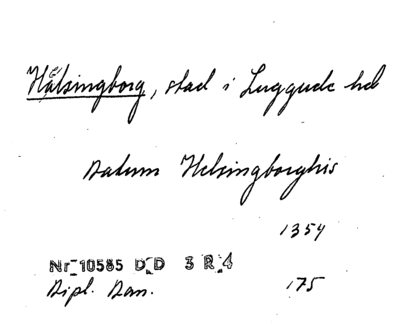 Hälsingborg, stad i Luggude hd
Datum Helsingborghis
1354
Nr 10585 D D 3 R 4
Dipl. Dan. 175